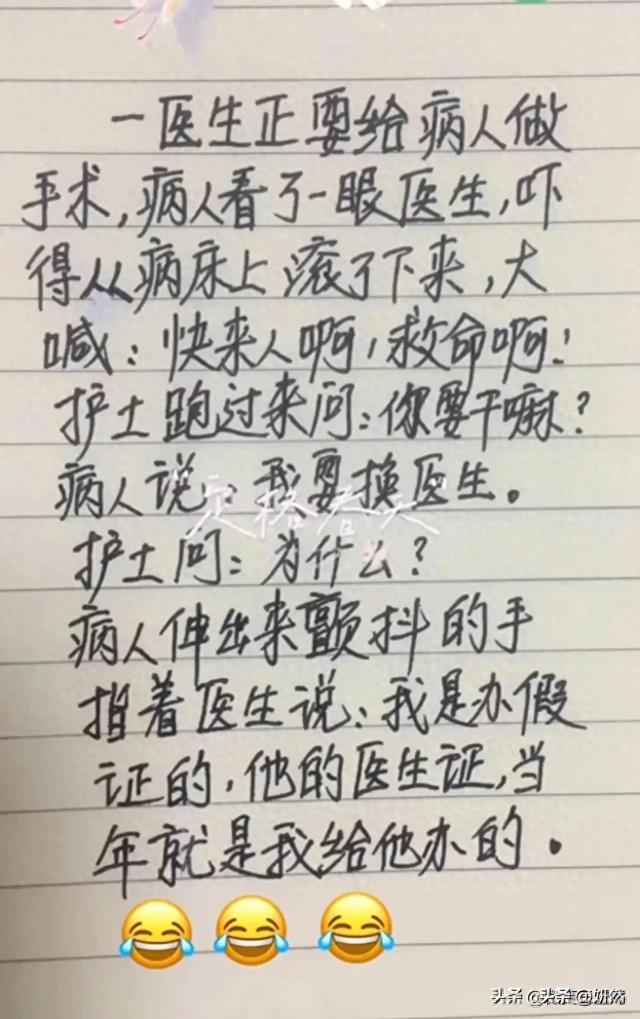 一医生正要给病人做
手术,病人看了一眼医生,吓
得从病床上滚了下来,大
喊:快来人啊,救命啊!
护士跑过来问:你要干嘛?
病人说:我要换医生。
护士问:为什么?
病人伸出来颤抖的手
指着医生说:我是办假
证的,他的医生证,当
年就是我给他办的。
头条 @头条 @妍然